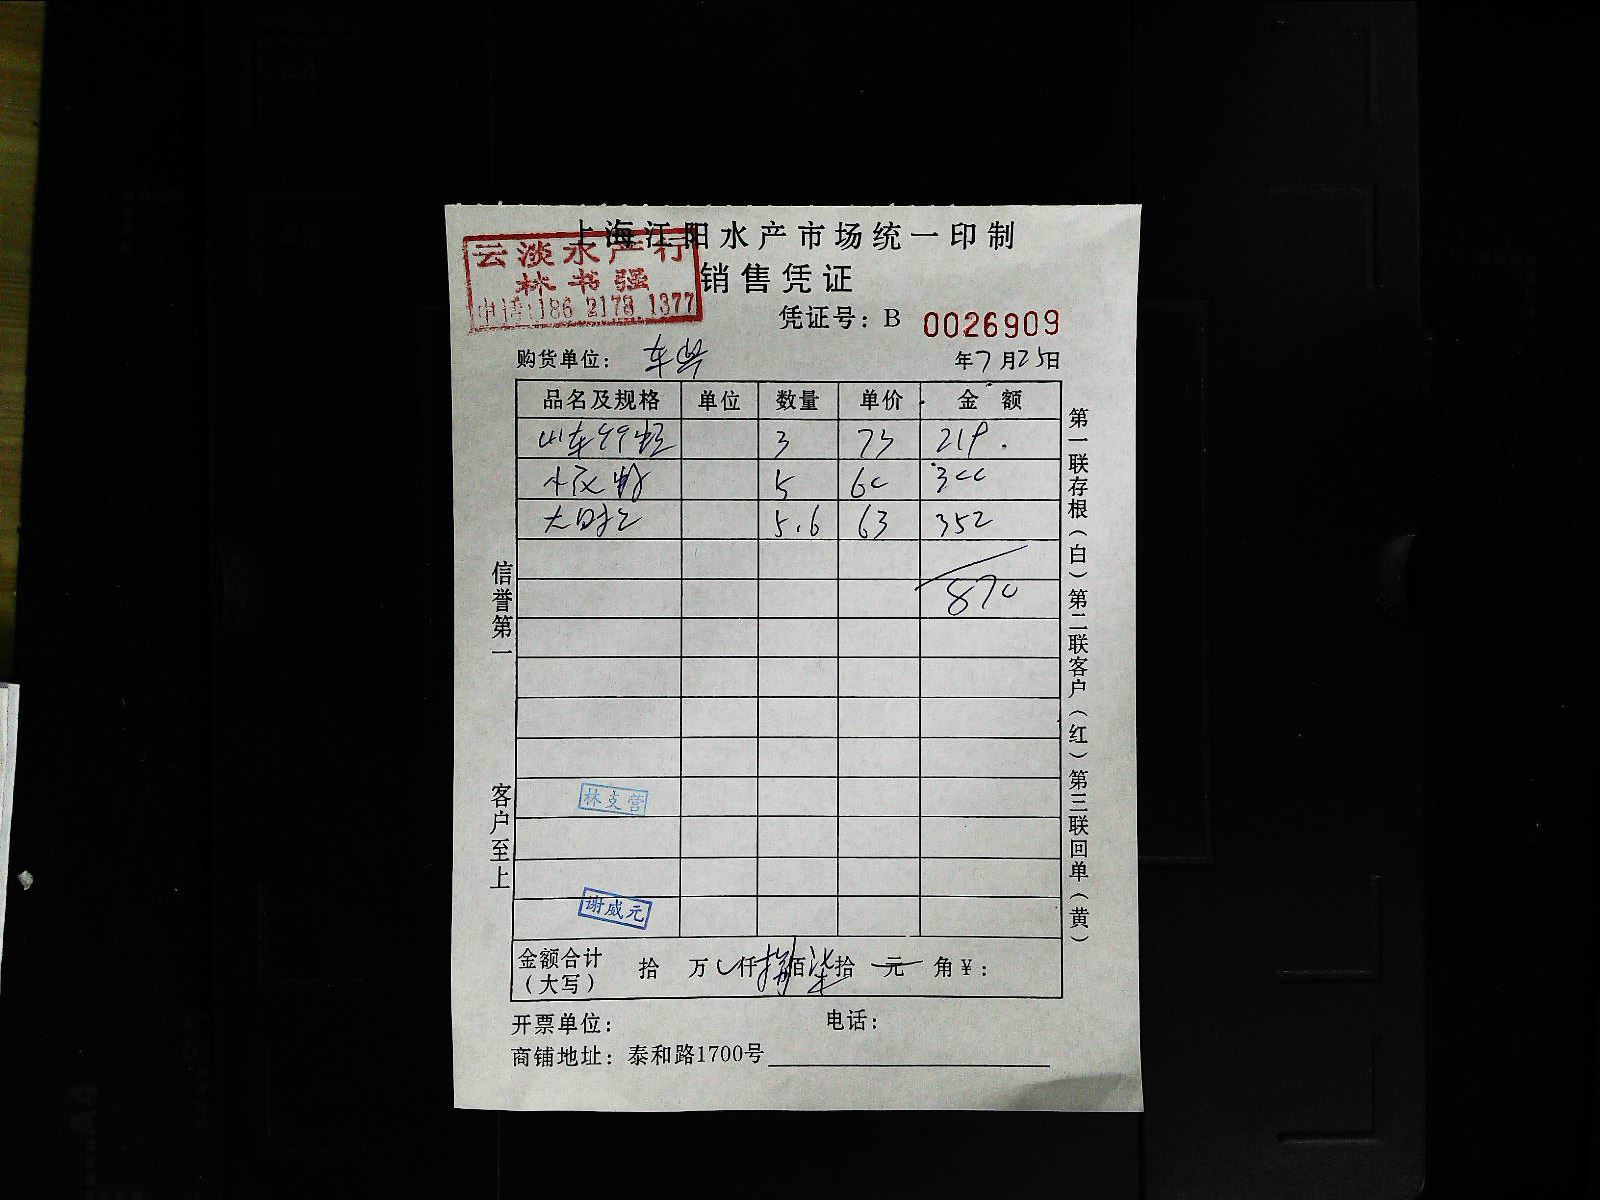 上海江阳水产市场统一印制
云淡水产行
林书强
电话:186 2178 1377
销售凭证
凭证号: B 0026909
购货单位:
年7月25日
品名及规格 单位 数量 单价 金 额
3 73 219.
5 60 300
5.6 63 352
870
信誉第一
客户至上
林支营
谢威元
金额合计(大写) 拾 万 仟捌佰柒拾 元 角¥:
开票单位: 电话:
商铺地址: 泰和路1700号
第一联存根(白)第二联客户(红)第三联回单(黄)